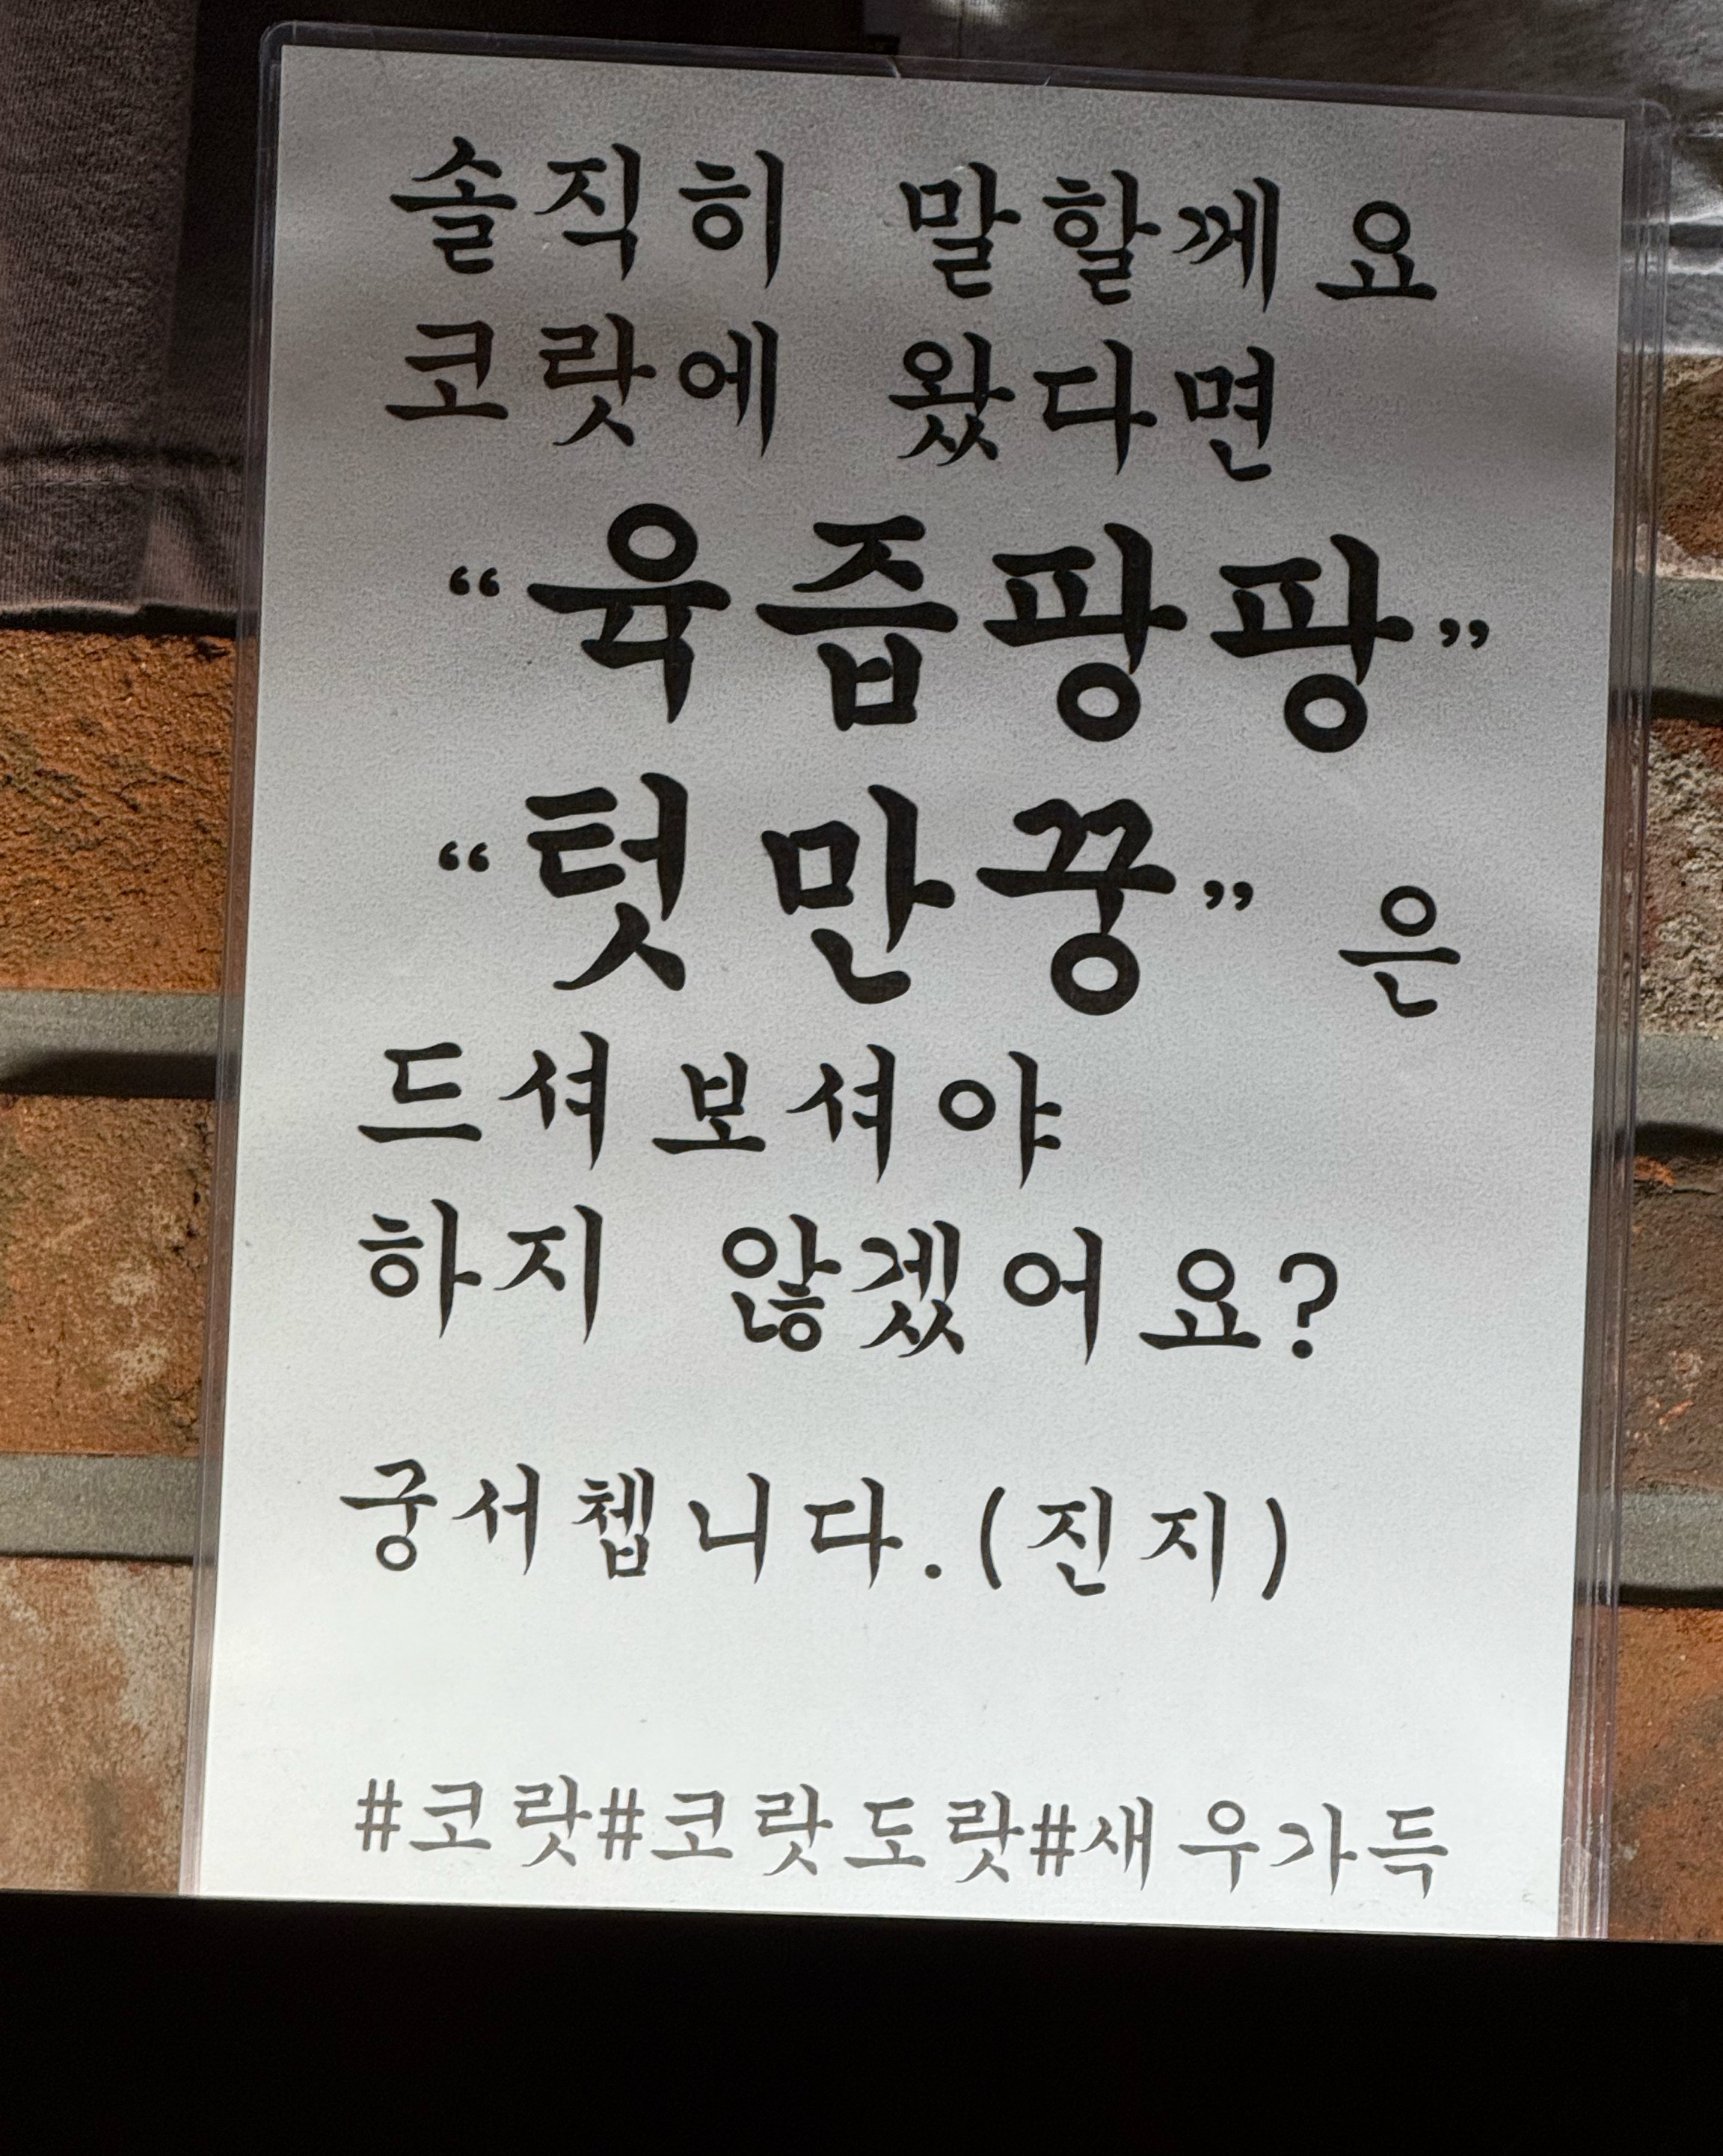 솔직히 말할께요
코랏에 왔다면
“육즙팡팡”
“텃만꿍” 은
드셔보셔야
하지 않겠어요?
궁서쳅니다.(진지)
#코랏#코랏도랏#새우가득